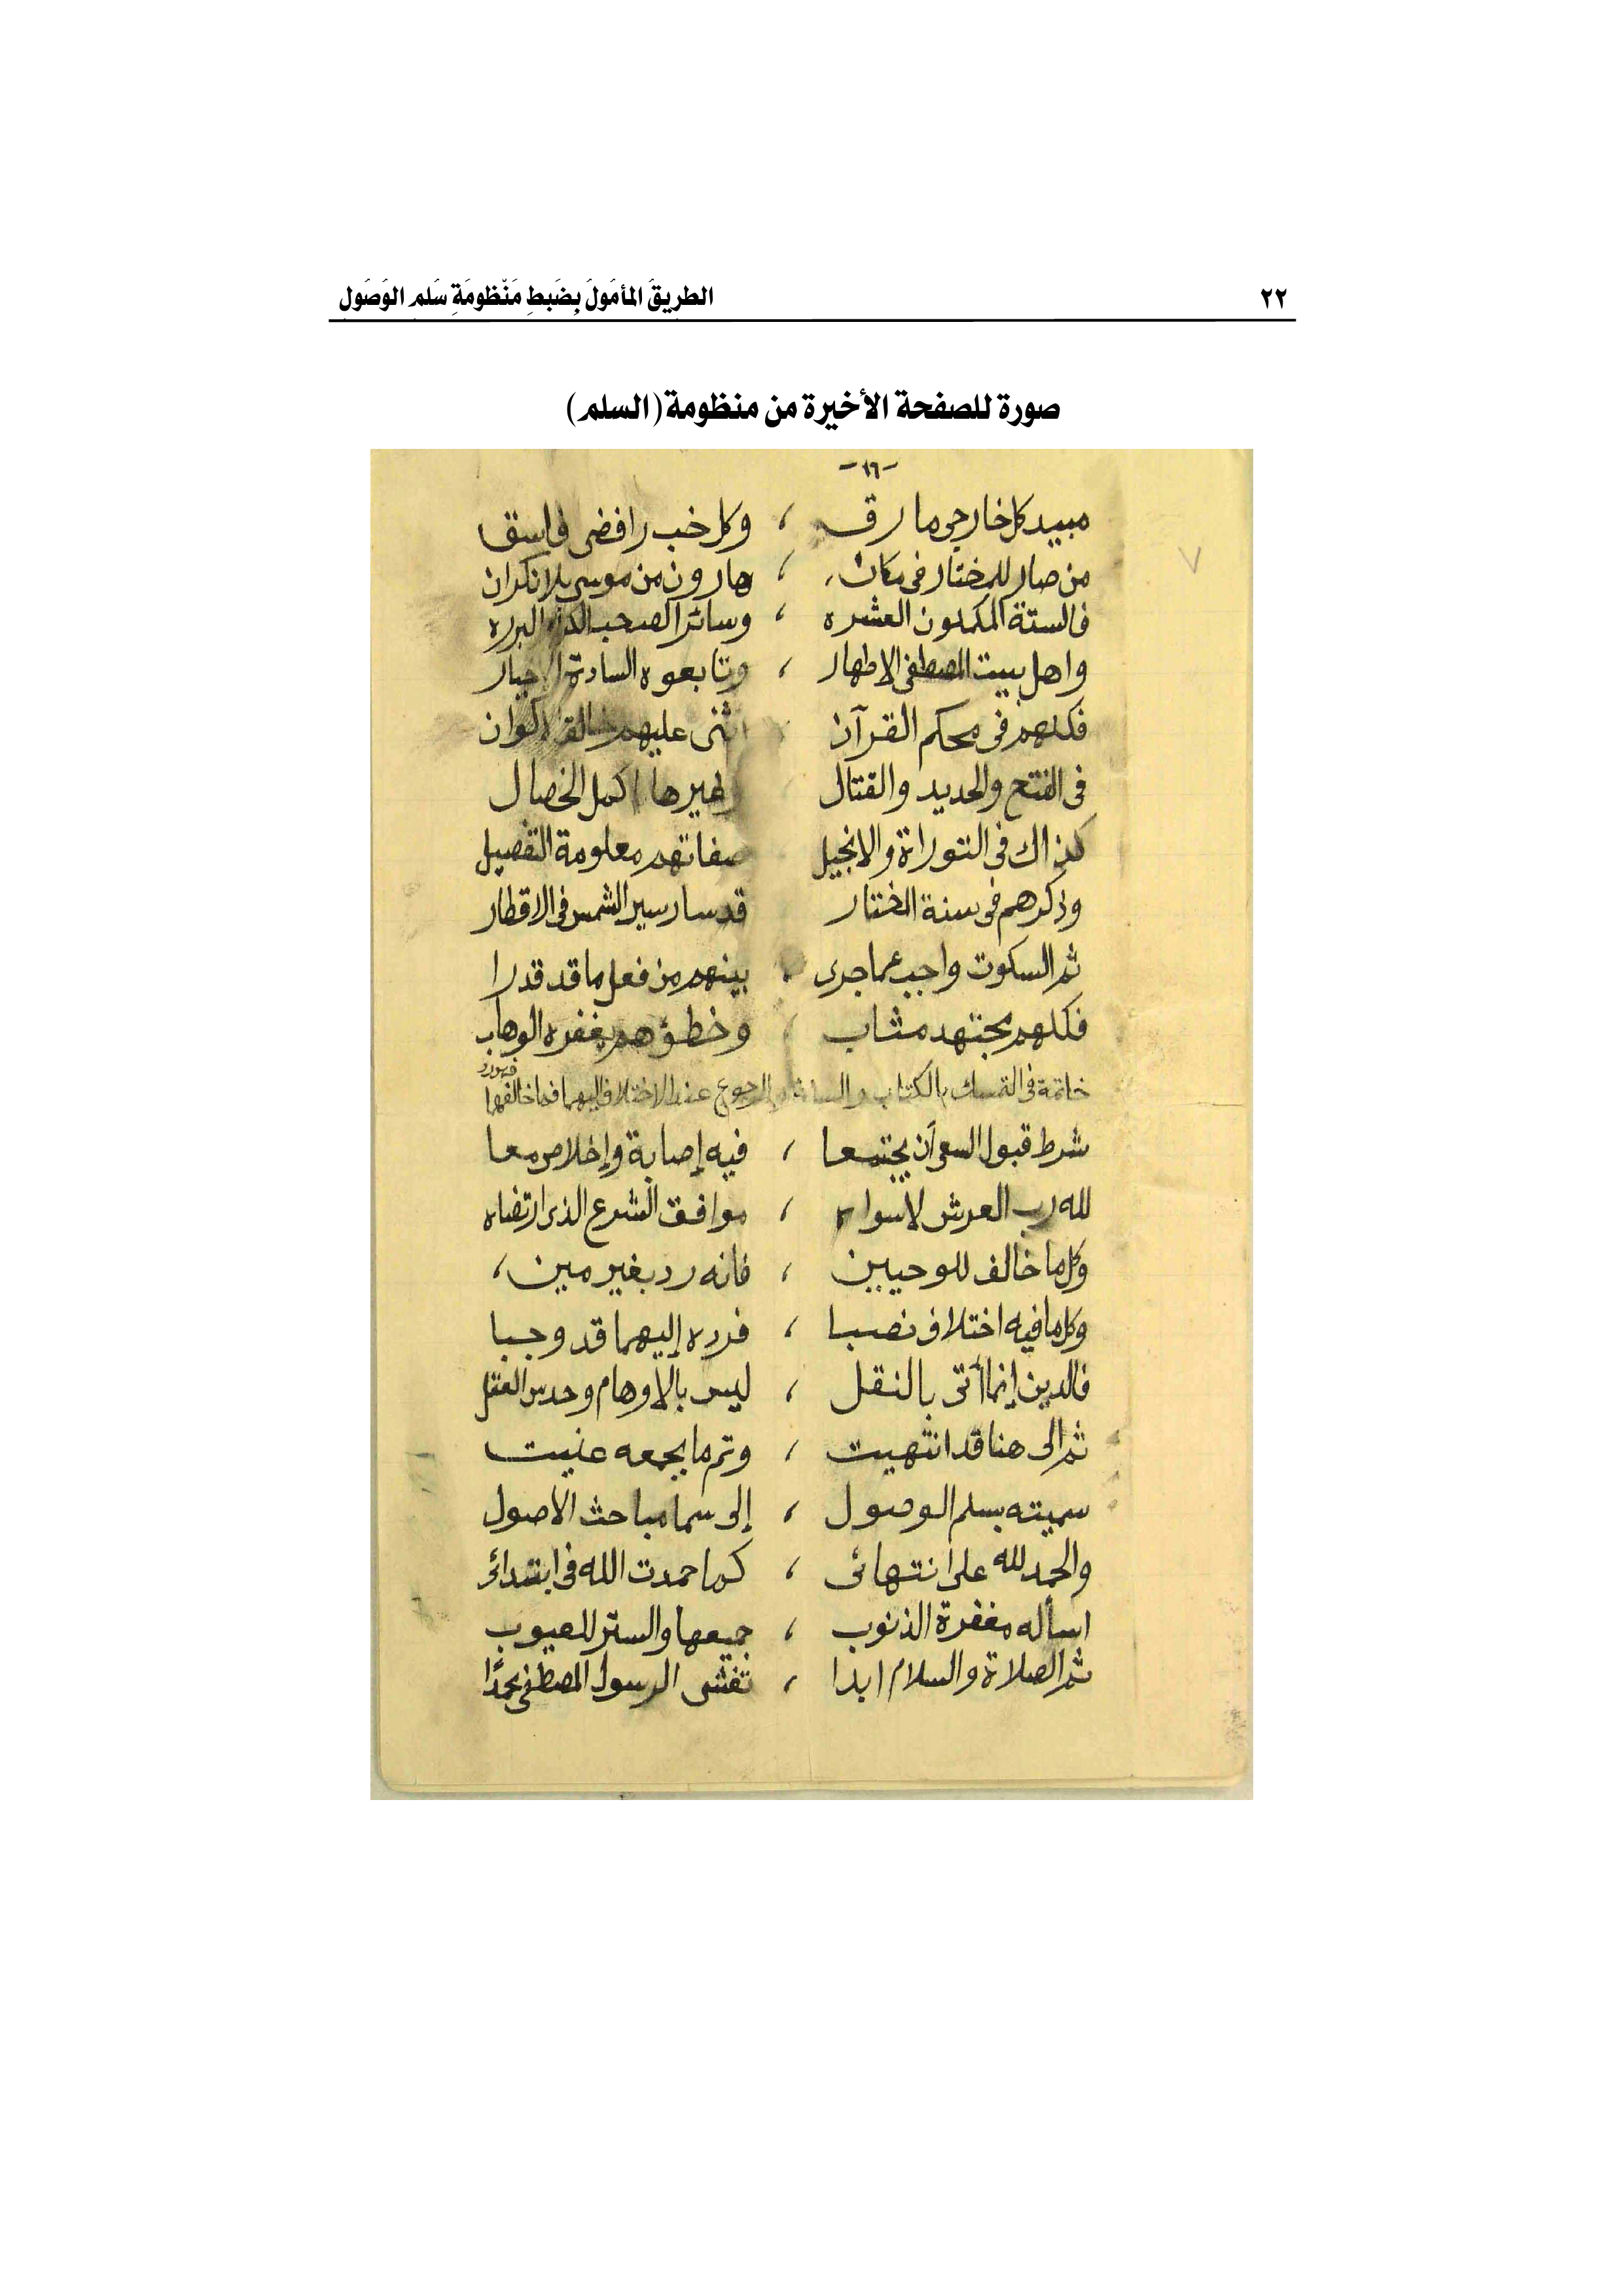 ٢٢ الطريقُ المأمُولُ بِضَبطِ مَنْظومَةِ سُلمِ الوُصُولِ
صورة للصفحة الأخيرة من منظومة (السلم)
-١٦-
مبيد كل خارجي مارق ، وكل خب رافضي فاسق
من صار للمختار في مكان ، هارون من موسى بلا نكران
فالستة المكملون العشره ، وسائر الصحب الكرام البرره
واهل بيت المصطفى الاطهار ، وتابعوه السادة الاخيار
فكلهم في محكم القرآن اثنى عليهم خالق الاكوان
في الفتح والحديد والقتال وغيرها اكمل الخصال
كذاك في التوراة والانجيل صفاتهم معلومة التفصيل
وذكرهم في سنة المختار قد سار سير الشمس في الاقطار
ثم السكوت واجب عما جرى ، بينهم من فعل ما قد قدرا
فكلهم مجتهد مثاب ، وخطؤهم يغفره الوهاب
خاتمة في التمسك بالكتاب والسنة والرجوع عند الاختلاف اليهما فما خالفهما فهو رد
شرط قبول السعي أن يجتمعا ، فيه إصابة وإخلاص معا
لله رب العرش لا سواه ، موافق الشرع الذي ارتضاه
وكل ما خالف للوحيين ، فانه رد بغير مين ،
وكل ما فيه اختلاف نصبا ، فرده إليهما قد وجبا
فالدين إنما أتى بالنقل ، ليس بالاوهام وحدس العقل
ثم الى هنا قد انتهيت ، وتم ما بجمعه عنيت
سميته بسلم الوصول ، إلى سما مباحث الأصول
والحمد لله على انتهائى ، كما حمدت الله في ابتدائى
اسأله مغفرة الذنوب ، جميعها والستر للعيوب
ثم الصلاة والسلام ابدا ، تغشى الرسول المصطفى محمدًا